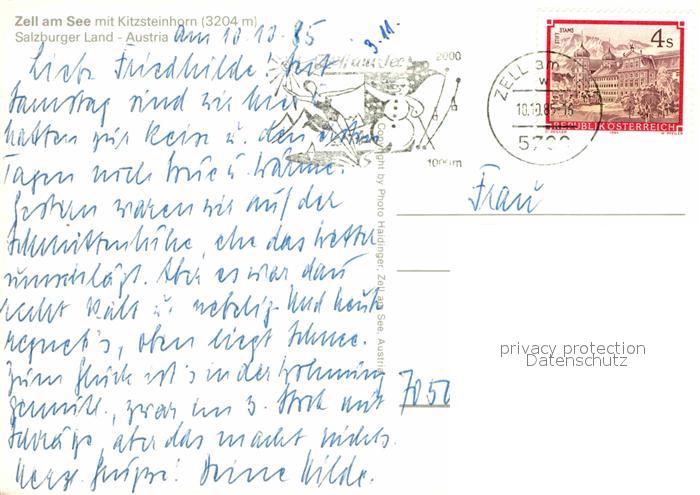 Zell am See mit Kitzsteinhorn (3204 m)
Salzburger Land - Austria
am 10.10.85
9.11.
Liebe Friedhilde! Seit
Samstag sind wir hier
hatten zur Reise u. den ersten
Tagen noch Wärme.
Gestern waren wir auf der
Schmittenhöhe, ehe das Wetter
umschlägt. Aber es war dann
recht kalt u. nebelig. Und heute
regnet's, oben liegt Schnee.
Zum Glück ist's in der Wohnung
gemütl., zwar im 3. Stock mit
Schräge, aber das macht nichts.
Herzl. Grüße! Deine Hilde.
Zell am See
2000
1000m
STIFT STAMS
4 S
REPUBLIK ÖSTERREICH
ZELL am
10.10.85-16
5700
Copyright by Photo Haidinger, Zell am See, Austria
Frau
privacy protection
Datenschutz
7050